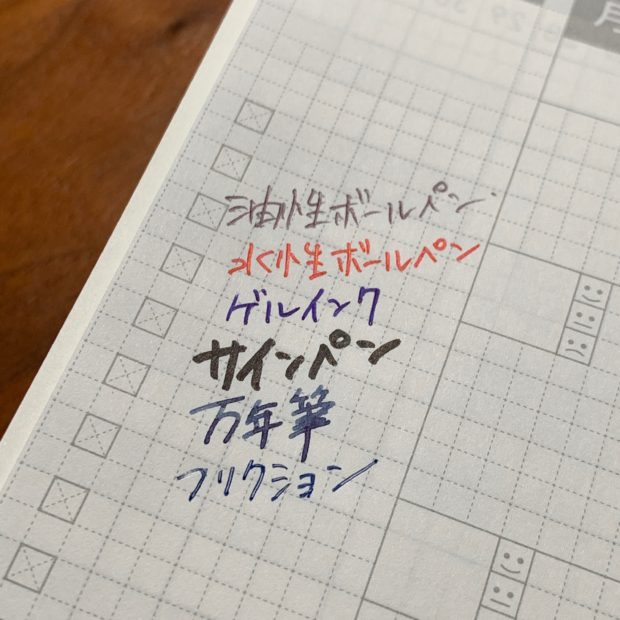 月
油性ボールペン
水性ボールペン
ゲルインク
サインペン
万年筆
フリクション